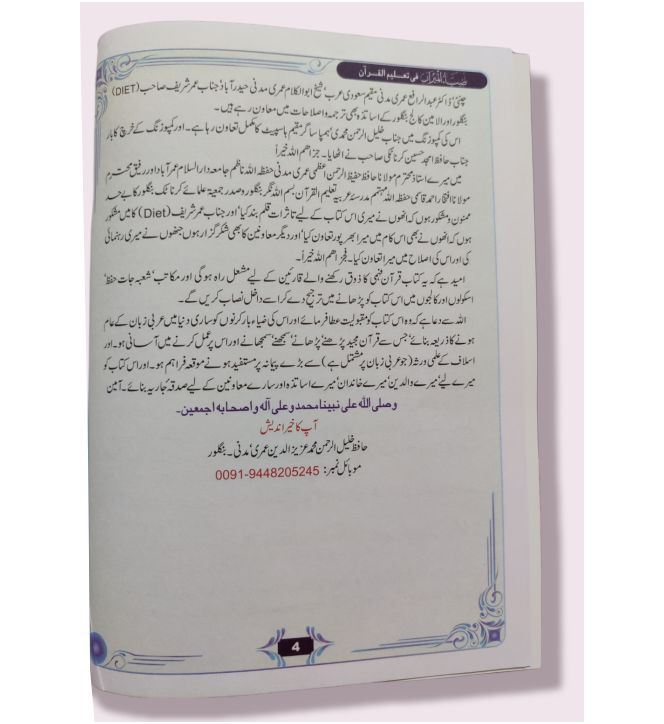 ضیاء المیزان فی تعلیم القرآن
چنئی‘ ڈاکٹر عبد الرافع عمری مدنی مقیم سعودی عرب‘ شیخ ابو الکلام عمری مدنی حیدرآباد‘ جناب عمر شریف صاحب (DIET)
بنگلور اور الامین کالج بنگلور کے اساتذہ بھی ترجمہ واصلاحات میں معاون رہے ہیں۔
اس کی کمپوزنگ میں جناب خلیل الرحمن محمدی‘ ہمپا ساگر مقیم ہاسپیٹ کا مکمل تعاون رہا ہے۔ اور کمپوزنگ کے خرچ کا بار
جناب حافظ امجد حسین کرناٹکی صاحب نے اٹھایا۔ جزاھم اللہ خیراً
میں میرے استاذ محترم مولانا حافظ حفیظ الرحمن اعظمی عمری مدنی حفظہ اللہ ناظم جامعہ دار السلام عمرآباد اور رفیق محترم
مولانا افتخار احمد قاسمی حفظہ اللہ مہتمم مدرسہ عربیہ تعلیم القرآن بسم اللہ نگر بنگلور وصدر جمعیۃ علمائے کرناٹک بنگلور کا بے حد
ممنون ومشکور ہوں کہ انھوں نے میری اس کتاب کے لیے تاثرات قلم بند کیا‘ اور جناب عمر شریف (Diet) کا میں مشکور
ہوں کہ انھوں نے بھی اس کام میں میرا بھر پور تعاون کیا‘ اور دیگر معاونین کا بھی شکر گزار ہوں جنھوں نے میری رہنمائی
کی اور اس کی اصلاح میں میرا تعاون کیا۔ فجزاھم اللہ خیراً۔
امید ہے کہ یہ کتاب قرآن فہمی کا ذوق رکھنے والے قارئین کے لیے مشعل راہ ہوگی اور مکاتب‘ شعبہ جات حفظ‘
اسکولوں اور کالجوں میں اس کتاب کو پڑھانے میں ترجیح دے کر اسے داخل نصاب کریں گے۔
اللہ سے دعا ہے کہ وہ اس کتاب کو مقبولیت عطا فرمائے اور اس کی ضیاء بار کرنوں کو ساری دنیا میں عربی زبان کے عام
ہونے کا ذریعہ بنائے‘ جس سے قرآن مجید پڑھنے‘ پڑھانے‘ سمجھنے‘ سمجھانے اور اس پر عمل کرنے میں آسانی ہو۔ اور
اسلاف کے علمی ورثہ (جو عربی زبان پر مشتمل ہے) سے بڑے پیمانہ پر مستفید ہونے موقعہ فراہم ہو۔ اور اس کتاب کو
میرے لیے‘ میرے والدین‘ میرے خاندان‘ میرے اساتذہ اور سارے معاونین کے لیے صدقۂ جاریہ بنائے۔ آمین
وصلی اللہ علی نبینا محمد وعلی آلہ واصحابہ اجمعین۔
آپ کا خیر اندیش
حافظ خلیل الرحمن محمد عزیز الدین عمری‘ مدنی۔ بنگلور
موبائل نمبر: 0091-9448205245
4